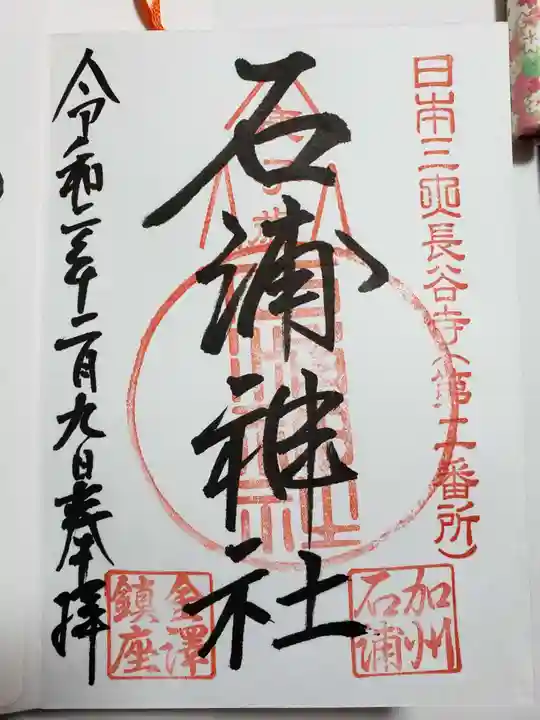 日本三所長谷寺(第二番所)
加州
石浦
石浦神社
令和二年十二月九日奉拝
金澤
鎮座